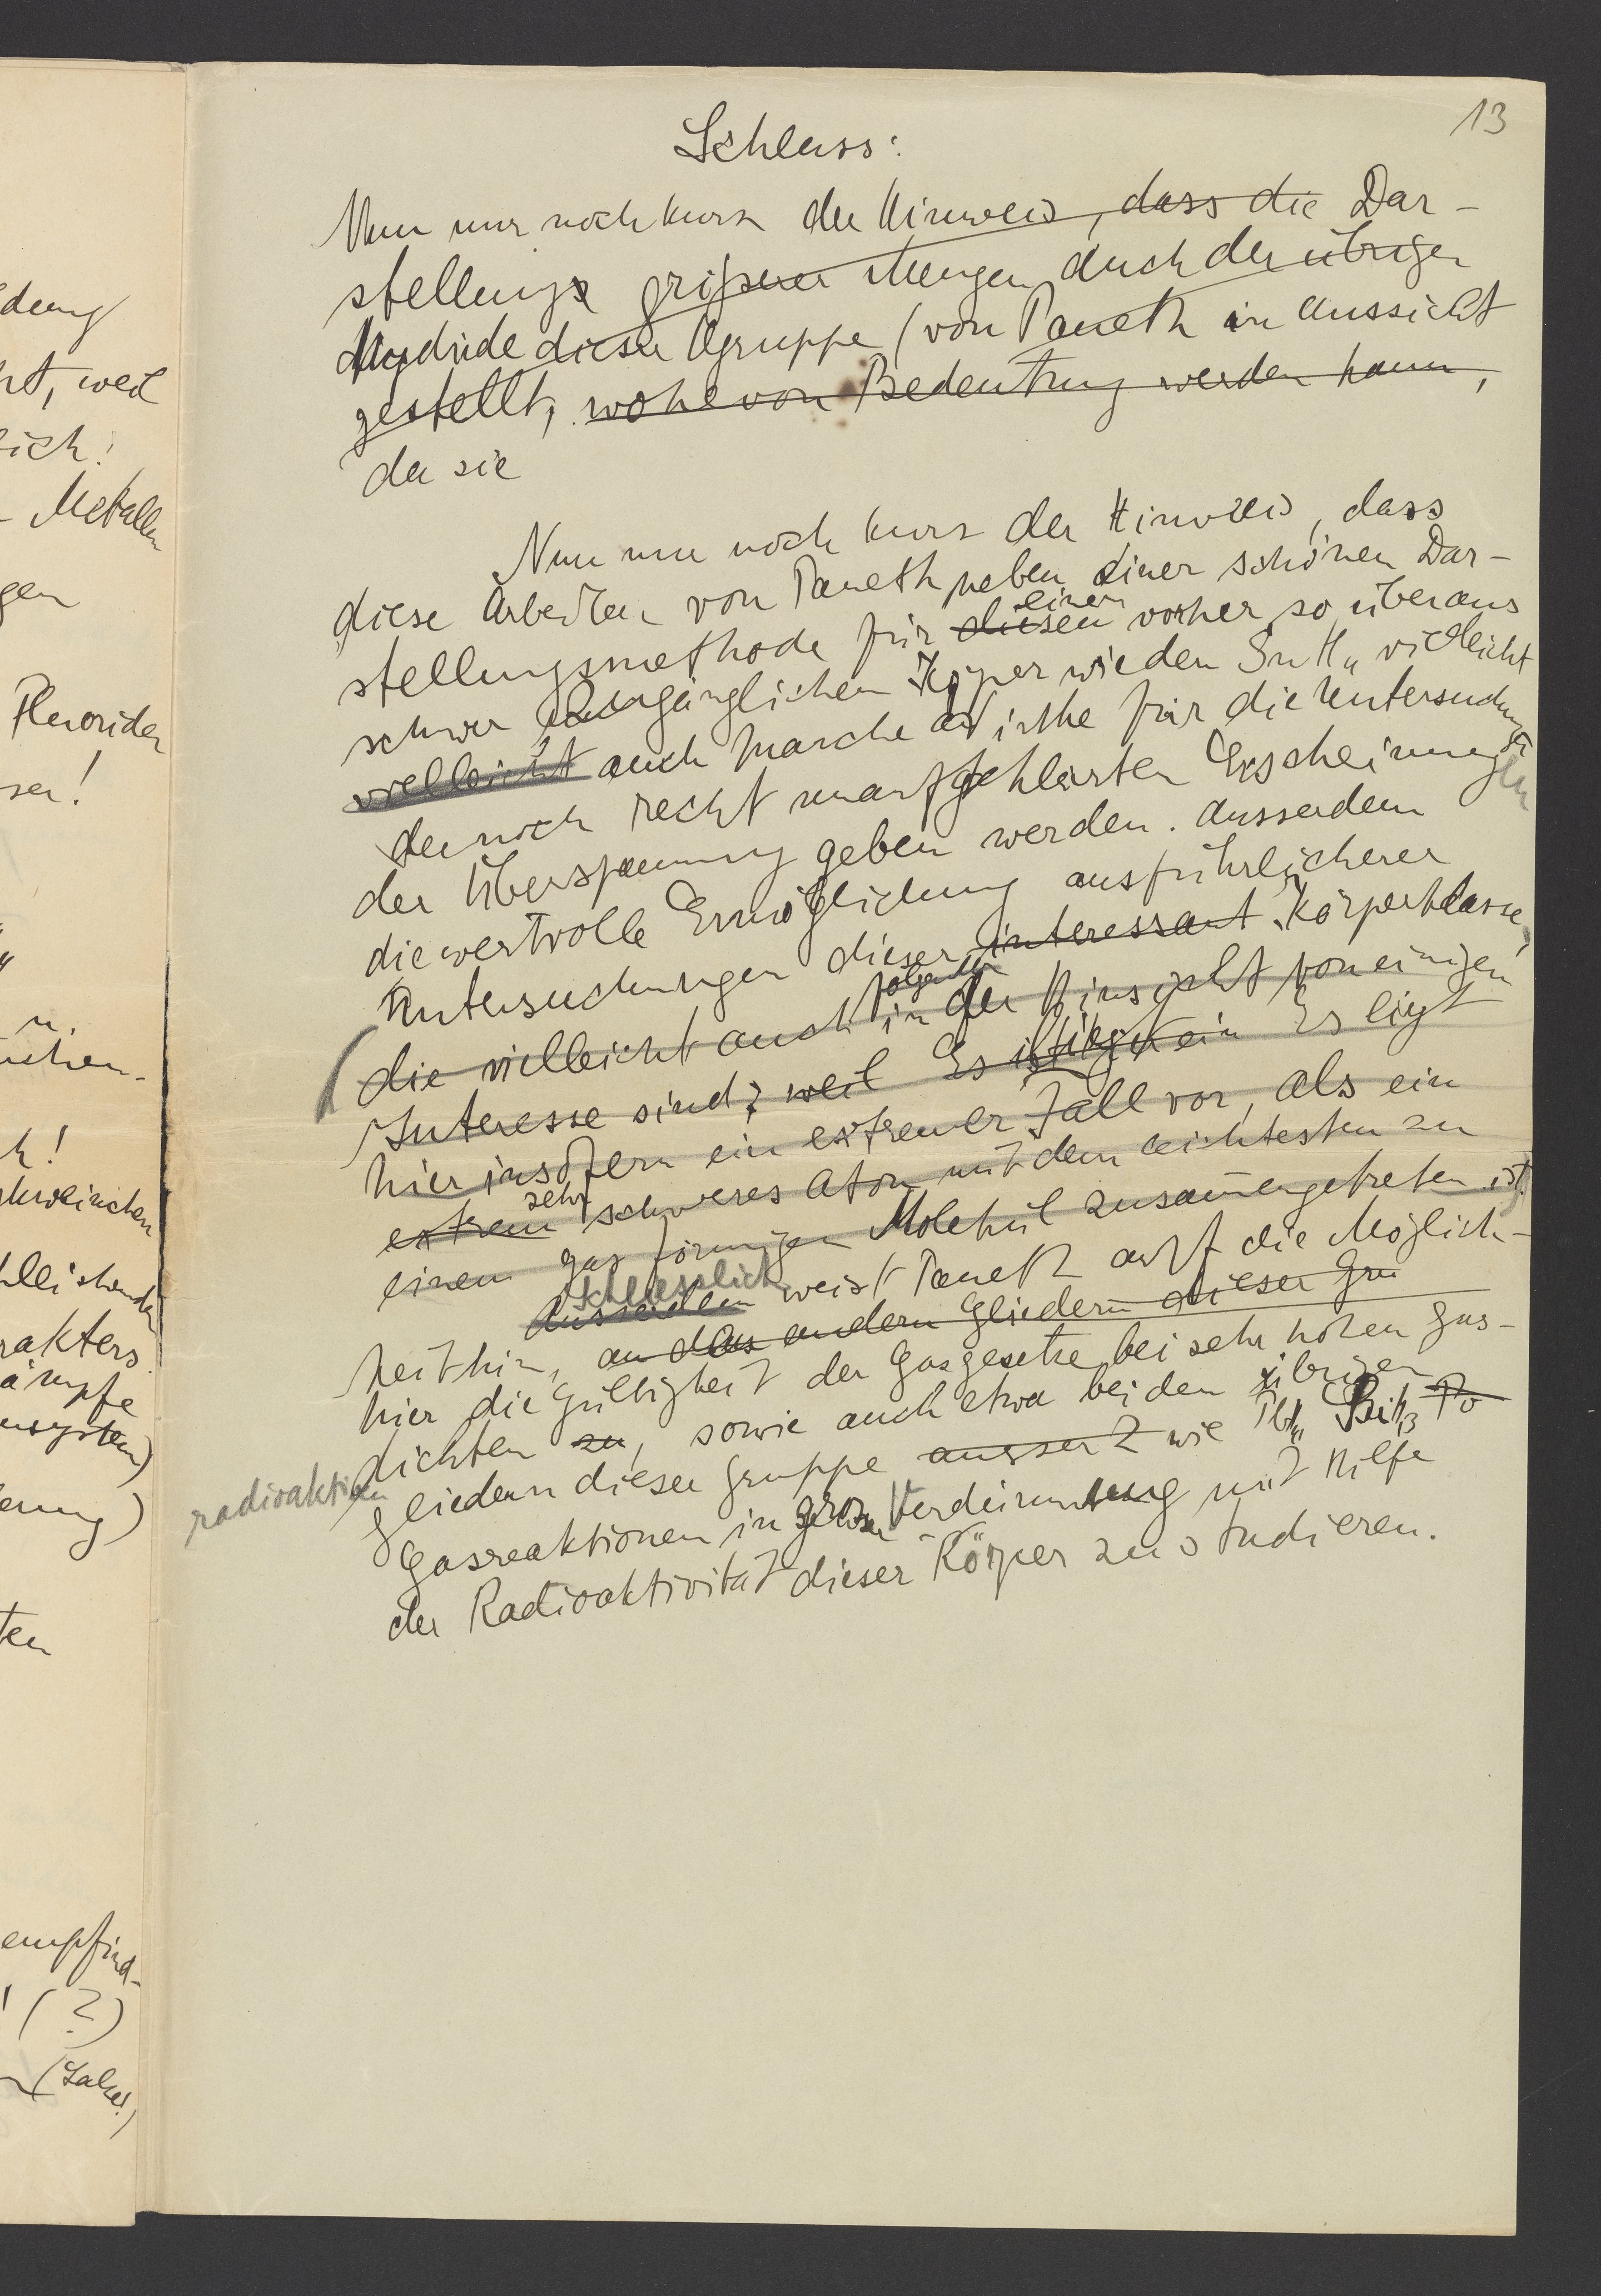 13
Schluss:
Nun nur noch kurz der Hinweis, dass die Dar-
stellung grösserer Mengen auch der übrigen
Hydride dieser Gruppe (von Paneth in Aussicht
gestellt, wohl von Bedeutung werden kann,
da sie
Nun nur noch kurz der Hinweis, dass
diese Arbeiten von Paneth neben einer schönen Dar-
stellungsmethode für diesen einen vorher so überaus
schwer zugänglichen Körper wie den SnH₄ vielleicht
vielleicht auch manche Winke für die Untersuchung
der noch recht unaufgeklärten Erscheinungen
der Überspannung geben werden. Ausserdem
die wertvolle Ermöglichung ausführlicherer
Untersuchungen dieser interessant. Körperklasse,
(die vielleicht auch in folgender der Hinsicht von einigem
Interesse sind; weil Es ist liegt ein Es liegt
hier insofern ein extremer Fall vor, als ein
extrem sehr schweres Atom mit dem leichtesten zu
einem gasförmigen Molekül zusammengetreten ist)
Ausserdem Schliesslich weist Paneth auf die Möglich-
keit hin, an das andern Gliedern dieser Gru
hier die Gültigkeit der Gasgesetze bei sehr hohen Gas-
dichten zu, sowie auch etwa bei den übrigen
radioaktiven
gliedern dieser Gruppe ausser Z wie PbH₄ BiH₃ Po
Gasreaktionen in grosser Verdünnung mit Hilfe
der Radioaktivität dieser Körper zu studieren.
dung
weil
ich!
Metallen
gen
Fluoriden
ser!
n.
h!
rakters
ämpfe
ensystem)
ung)
ten
empfind-
(?)